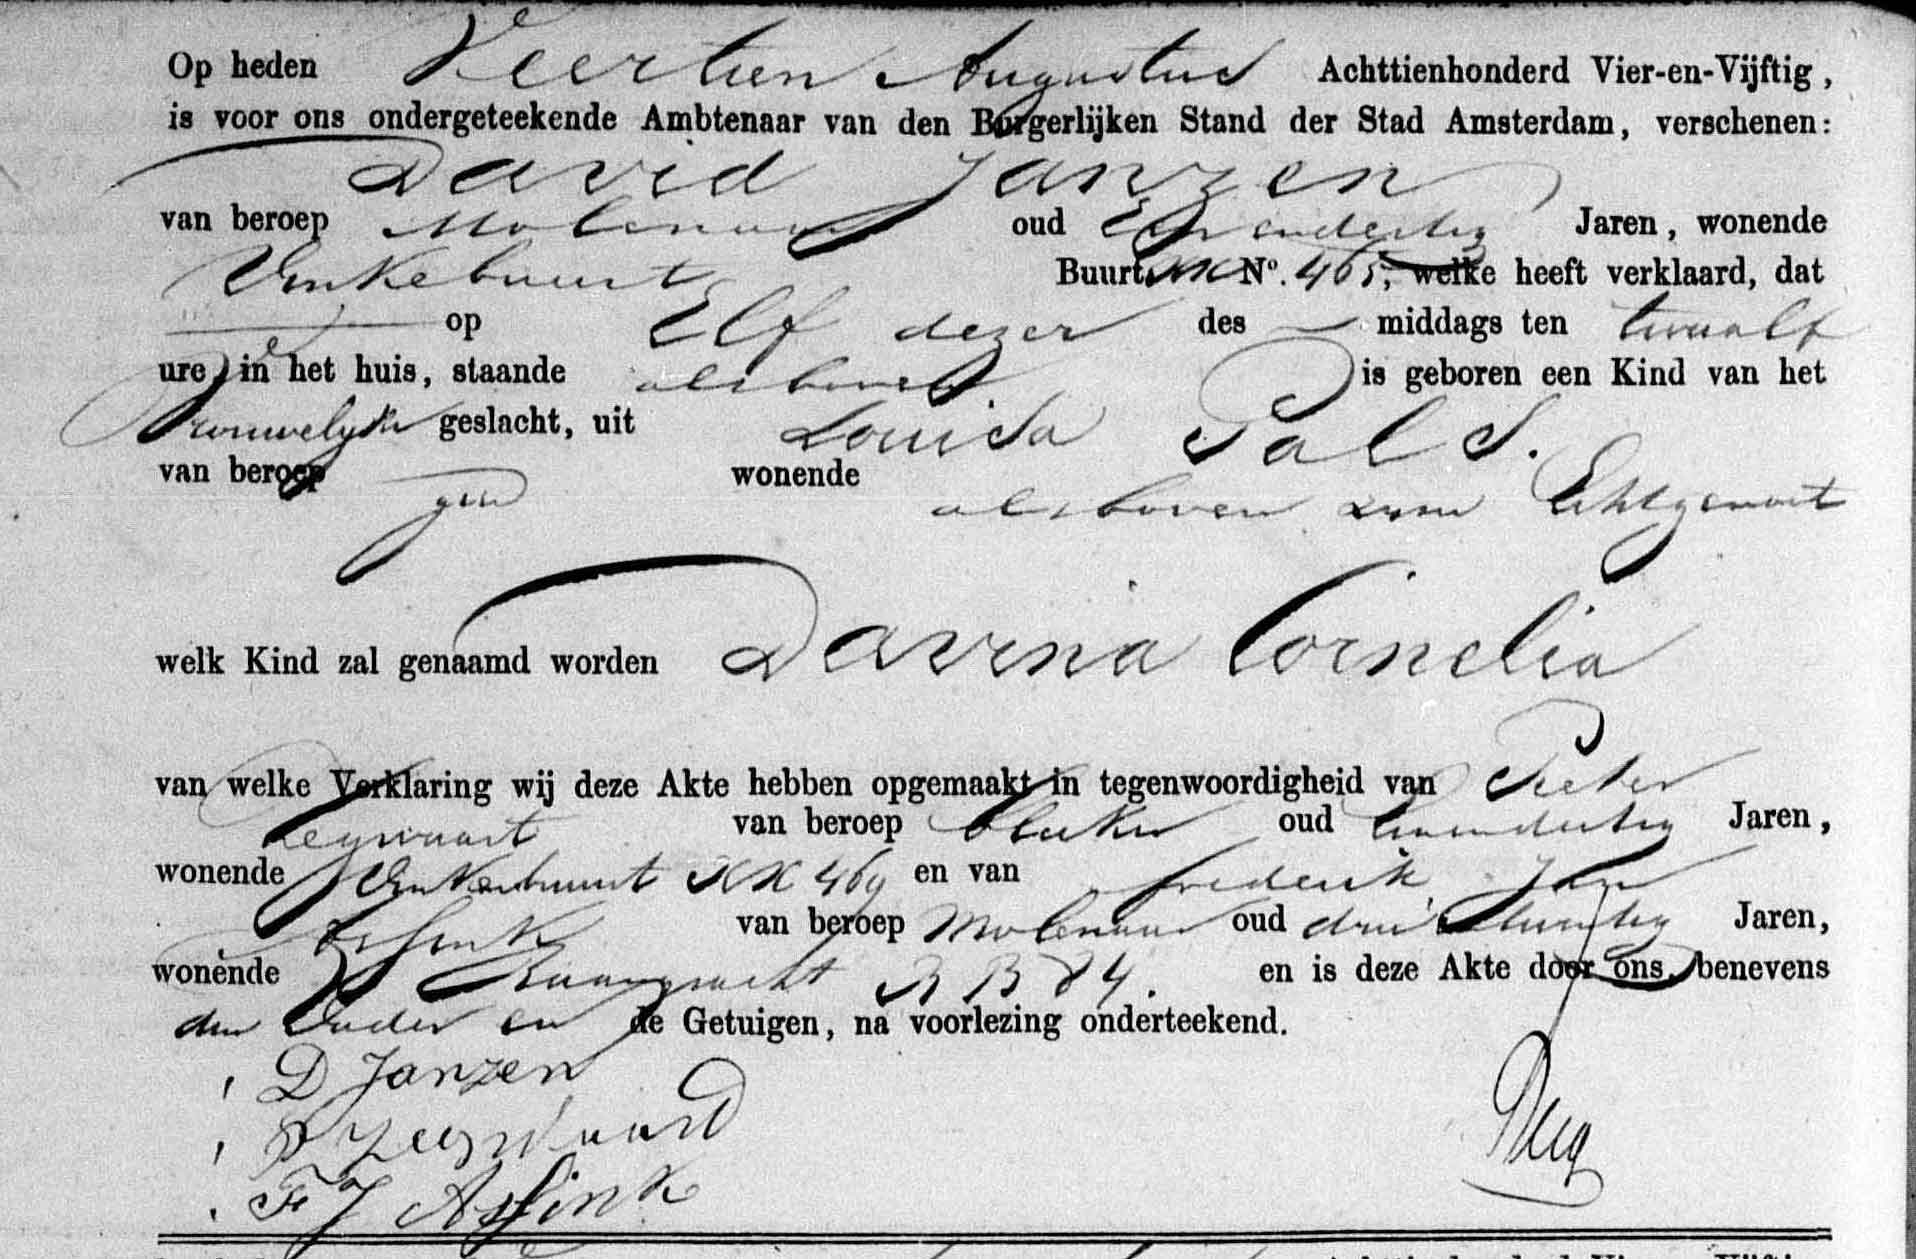 Op heden Veertien Augustus Achttienhonderd Vier-en-Vijftig,
is voor ons ondergeteekende Ambtenaar van den Burgerlijken Stand der Stad Amsterdam, verschenen:
David Janzen
van beroep Molenaar oud Een en dertig Jaren, wonende
Vinkebuurt Buurt XX Nº. 465, welke heeft verklaard, dat
op Elf dezer des middags ten twaalf
ure, in het huis, staande als boven is geboren een Kind van het
vrouwelijk geslacht, uit Louisa Pals.
van beroep geen wonende
als boven zyne Echtgenoot
welk Kind zal genaamd worden Davina Cornelia
van welke Verklaring wij deze Akte hebben opgemaakt in tegenwoordigheid van Pieter
Zeegwaart van beroep bleeker oud Jaren,
wonende Vinkebuurt XX 469 en van Frederik Jan
Assink van beroep Molenaar oud drie en twintig Jaren,
wonende Baangracht BB 84. en is deze Akte door ons, benevens
den Vader en de Getuigen, na voorlezing onderteekend.
D Janzen
P Zeegwaard
F J Assink